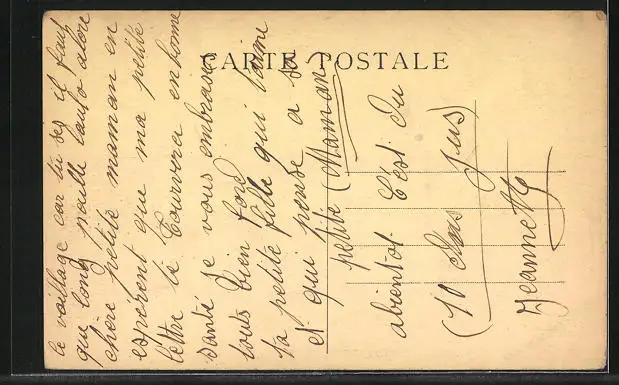 CARTE POSTALE
le voillage car tu ses il faut
qui long maille lauto alors
chere petite maman en
esperent que ma petite
lettre te trouvera en bonne
santé je vous embrasse
tous bien fort
ta petite fille qui t'aime
et qui pense a sa
petite Maman
abientot C'est du
(10 jus)
Jeannette